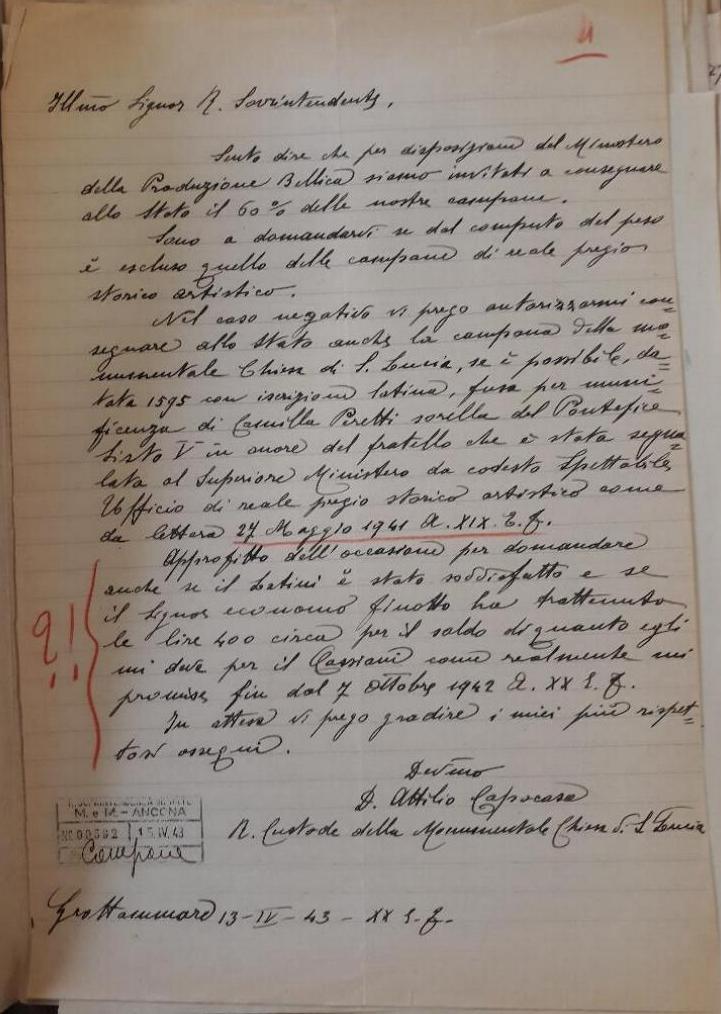 4
Illmo Signor R. Sovrintendente,
Sento dire che per disposizione del Ministero
della Produzione Bellica siamo invitati a consegnare
allo Stato il 60% delle nostre campane.
Sono a domandarvi se dal computo del peso
è escluso quello delle campane di reale pregio
storico artistico.
Nel caso negativo vi prego autorizzarmi con=
segnare allo Stato anche la campana della mo=
numentale Chiesa di S. Lucia, se è possibile, da=
tata 1595 con iscrizione latina, fusa per muni=
ficenza di Camilla Peretti sorella del Pontefice
Sisto V in onore del fratello che è stata segna=
lata al Superiore Ministero da codesto Spettabile
Ufficio di reale pregio storico artistico come
da lettera 27 Maggio 1941 A. XIX. E. F.
Approfitto dell'occasione per domandare
anche se il Latini è stato soddisfatto e se
il Signor economo Finotto ha trattenuto
le lire 400 circa per il saldo di quanto egli
mi deve per il Cassiani come realmente mi
promise fin dal 7 Ottobre 1942 A. XX E. F.
In attesa vi prego gradire i miei più rispet=
tosi ossequi.
?!
Devmo
D. Attilio Capocasa
R. Custode della Monumentale Chiesa di S. Lucia
M. e M. - ANCONA
15.IV.43
Campane
Grottammare 13-IV-43-XX E. F.